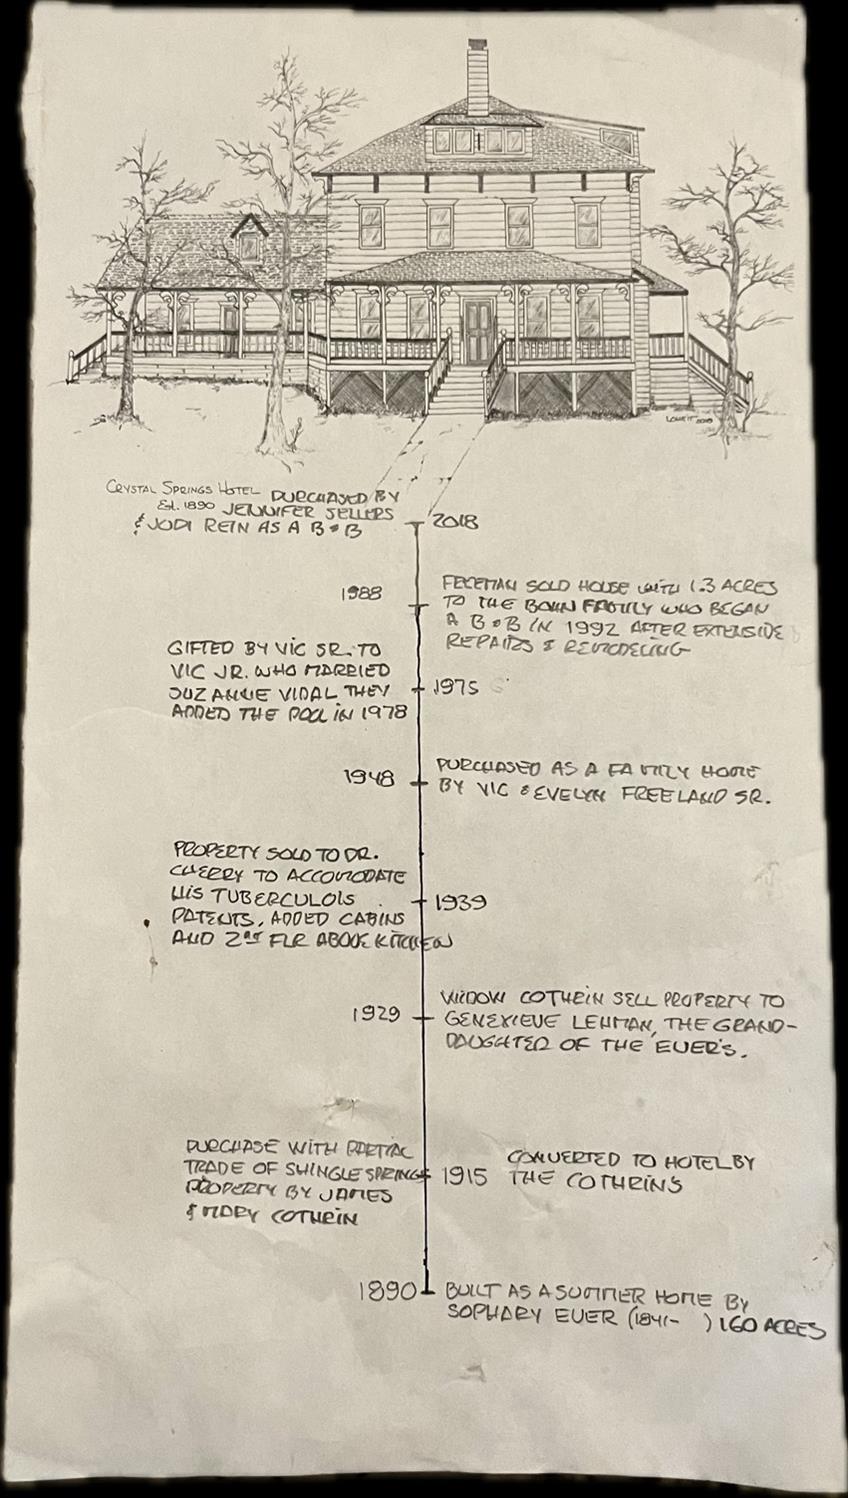 CRYSTAL SPRINGS HOTEL PURCHASED BY
Est. 1890 JENNIFER SELLERS
& JODI REIN AS A B & B
2018
1988
FREEMAN SOLD HOUSE WITH 1.3 ACRES
TO THE BOHN FAMILY WHO BEGAN
A B & B IN 1992 AFTER EXTENSIVE
REPAIRS & REMODELING
GIFTED BY VIC SR. TO
VIC JR. WHO MARRIED
SUZANNE VIDAL THEY
ADDED THE POOL IN 1978
1975
1948
PURCHASED AS A FAMILY HOME
BY VIC & EVELYN FREELAND SR.
PROPERTY SOLD TO DR.
CHERRY TO ACCOMODATE
HIS TUBERCULOIS
PATENTS, ADDED CABINS
AND 2nd FLR ABOVE KITCHEN
1939
1929
WIDOW COTHRIN SELL PROPERTY TO
GENEVIEVE LEHMAN, THE GRAND-
DAUGHTER OF THE EUER'S.
PURCHASE WITH PARTIAL
TRADE OF SHINGLE SPRINGS
PROPERTY BY JAMES
& MARY COTHRIN
1915
CONVERTED TO HOTEL BY
THE COTHRIN'S
1890
BUILT AS A SUMMER HOME BY
SOPHARY EUER (1841- ) 160 ACRES